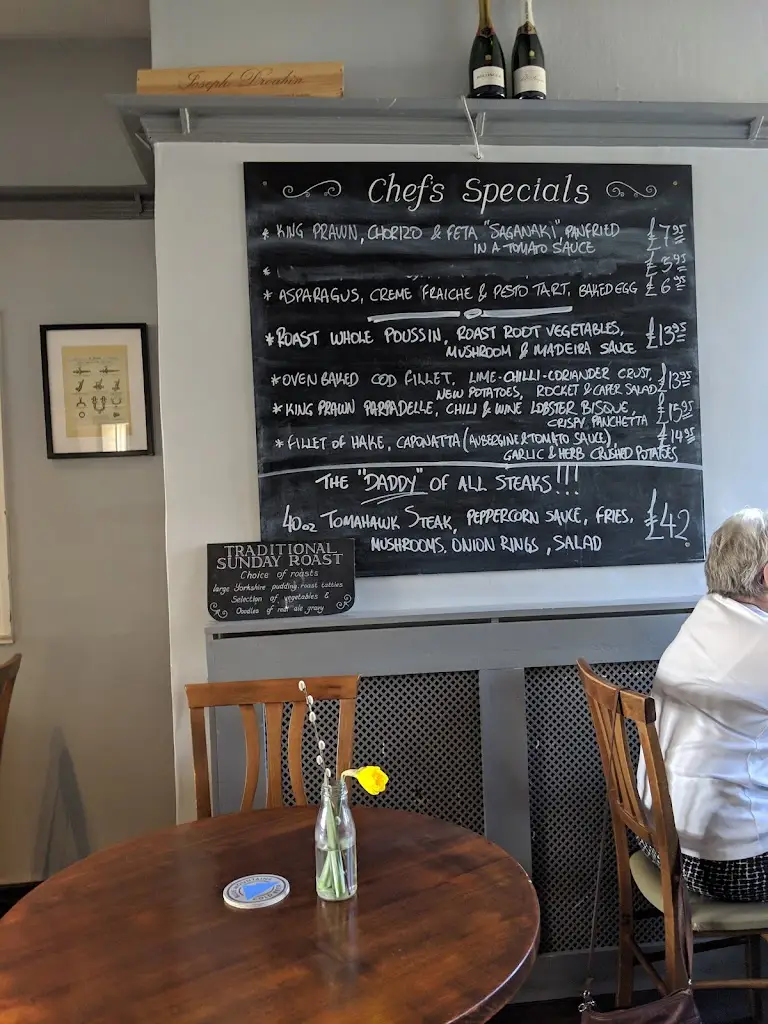 Joseph Drouhin
Chef's Specials
* KING PRAWN, CHORIZO & FETA "SAGANAKI", PANFRIED
IN A TOMATO SAUCE £7.95
* £5.95
* ASPARAGUS, CREME FRAICHE & PESTO TART, BAKED EGG £6.95
* ROAST WHOLE POUSSIN, ROAST ROOT VEGETABLES, £13.95
MUSHROOM & MADEIRA SAUCE
* OVEN BAKED COD FILLET, LIME-CHILLI-CORIANDER CRUST, £13.95
NEW POTATOES, ROCKET & CAPER SALAD
* KING PRAWN PARPADELLE, CHILI & WINE LOBSTER BISQUE, £15.95
CRISPY PANCHETTA
* FILLET OF HAKE, CAPONATTA (AUBERGINE & TOMATO SAUCE), £14.95
GARLIC & HERB CRUSHED POTATOES
THE "DADDY" OF ALL STEAKS!!!
40oz TOMAHAWK STEAK, PEPPERCORN SAUCE, FRIES, £42
MUSHROOMS, ONION RINGS, SALAD
TRADITIONAL
SUNDAY ROAST
Choice of roasts
large Yorkshire pudding, roast tatties
Selection of vegetables &
Oodles of real ale gravy